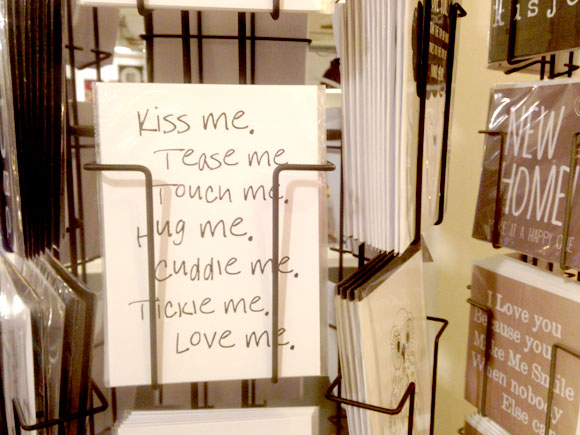 Kiss me.
Tease me
Touch me.
Hug me.
Cuddle me.
Tickle me.
Love me.
is J
NEW
HOME
A HAPPY ONE
I Love you
Because you
Make Me Smile
When nobody
Else Ca